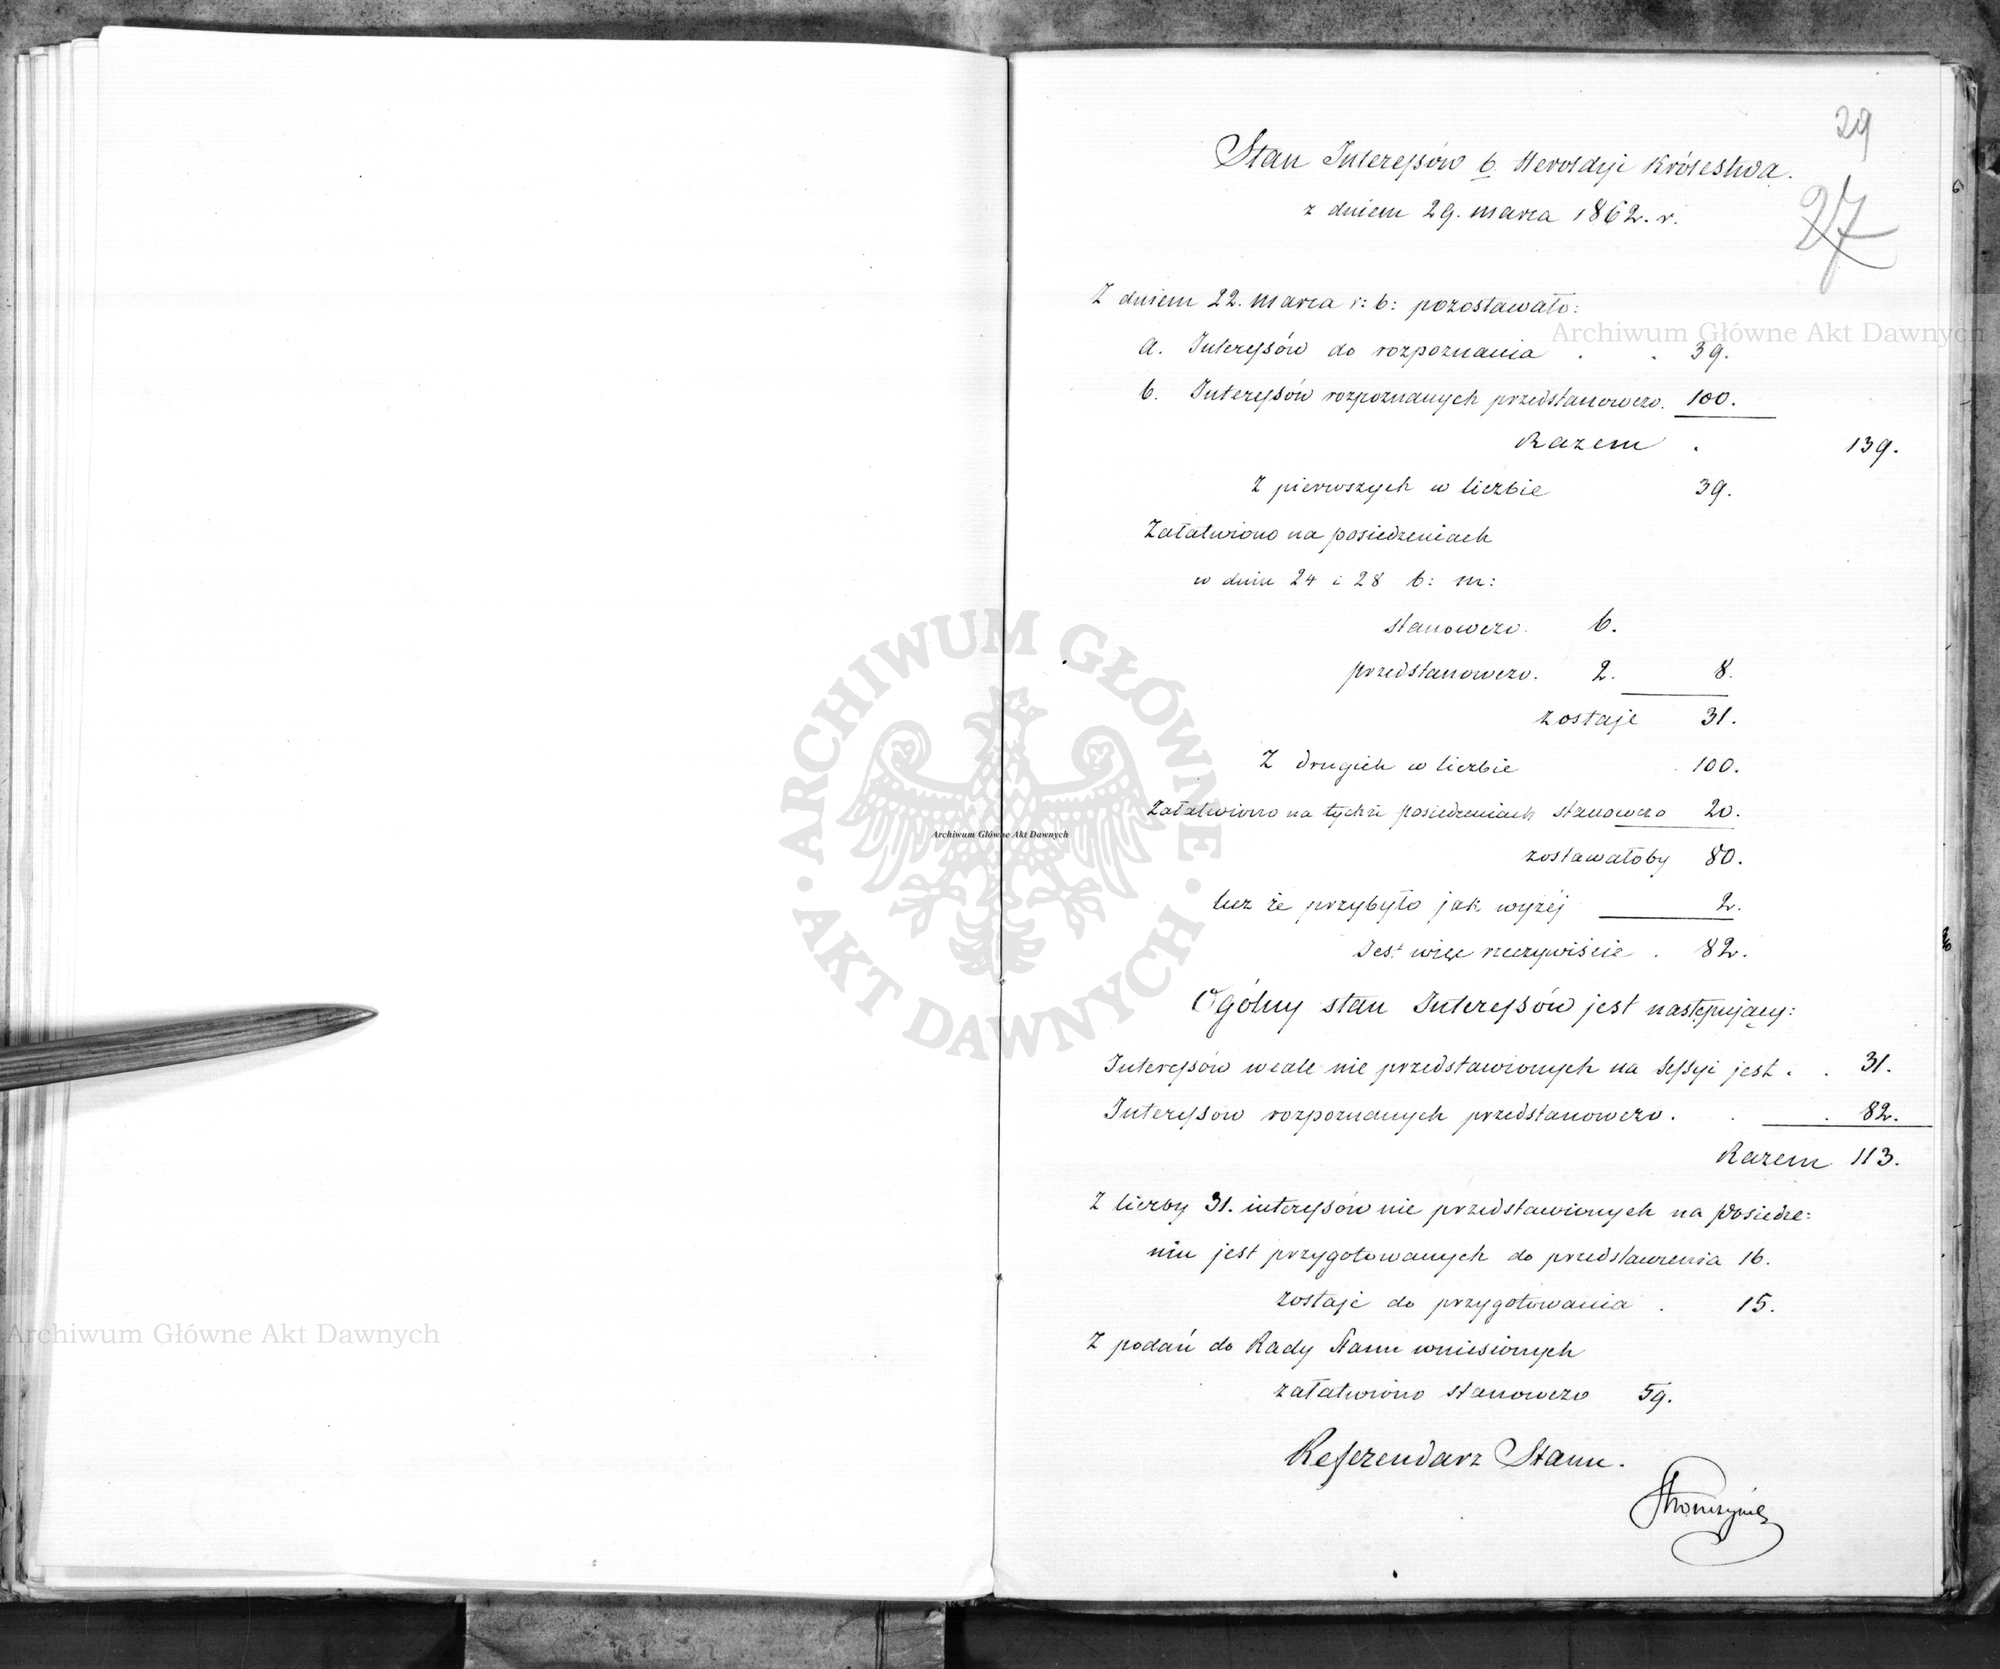 29
Stan Interessów b. Heroldyi Królestwa.
27
z dniem 29. marca 1862. r.
Z dniem 22. marca r: b: pozostawało:
a. Interessów do rozpoznania . . 39.
b. Interessów rozpoznanych przedstanowczo. 100.
Razem . 139.
Z pierwszych w liczbie 39.
Załatwiono na posiedzeniach
w dniu 24 i 28 b: m:
stanowczo. 6.
przedstanowczo. 2. 8.
zostaje 31.
Z drugich w liczbie 100.
Załatwiono na tychże posiedzeniach stanowczo 20.
zostawałoby 80.
lecz że przybyło jak wyżéj 2.
Jest więc rzeczywiście . 82.
Ogólny stan Interessów jest następujący:
Interessów wcale nie przedstawionych na Sessyi jest . . 31.
Interessów rozpoznanych przedstanowczo. . . 82.
Razem 113.
Z liczby 31. interessów nie przedstawionych na posiedze:
niu jest przygotowanych do przedstawienia 16.
zostaje do przygotowania . 15.
Z podań do Rady Stanu wniesionych
załatwiono stanowczo 59.
Referendarz Stanu.
Archiwum Główne Akt Dawnych
ARCHIWUM GŁÓWNE
AKT DAWNYCH
Archiwum Główne Akt Dawnych
Archiwum Główne Akt Dawnych